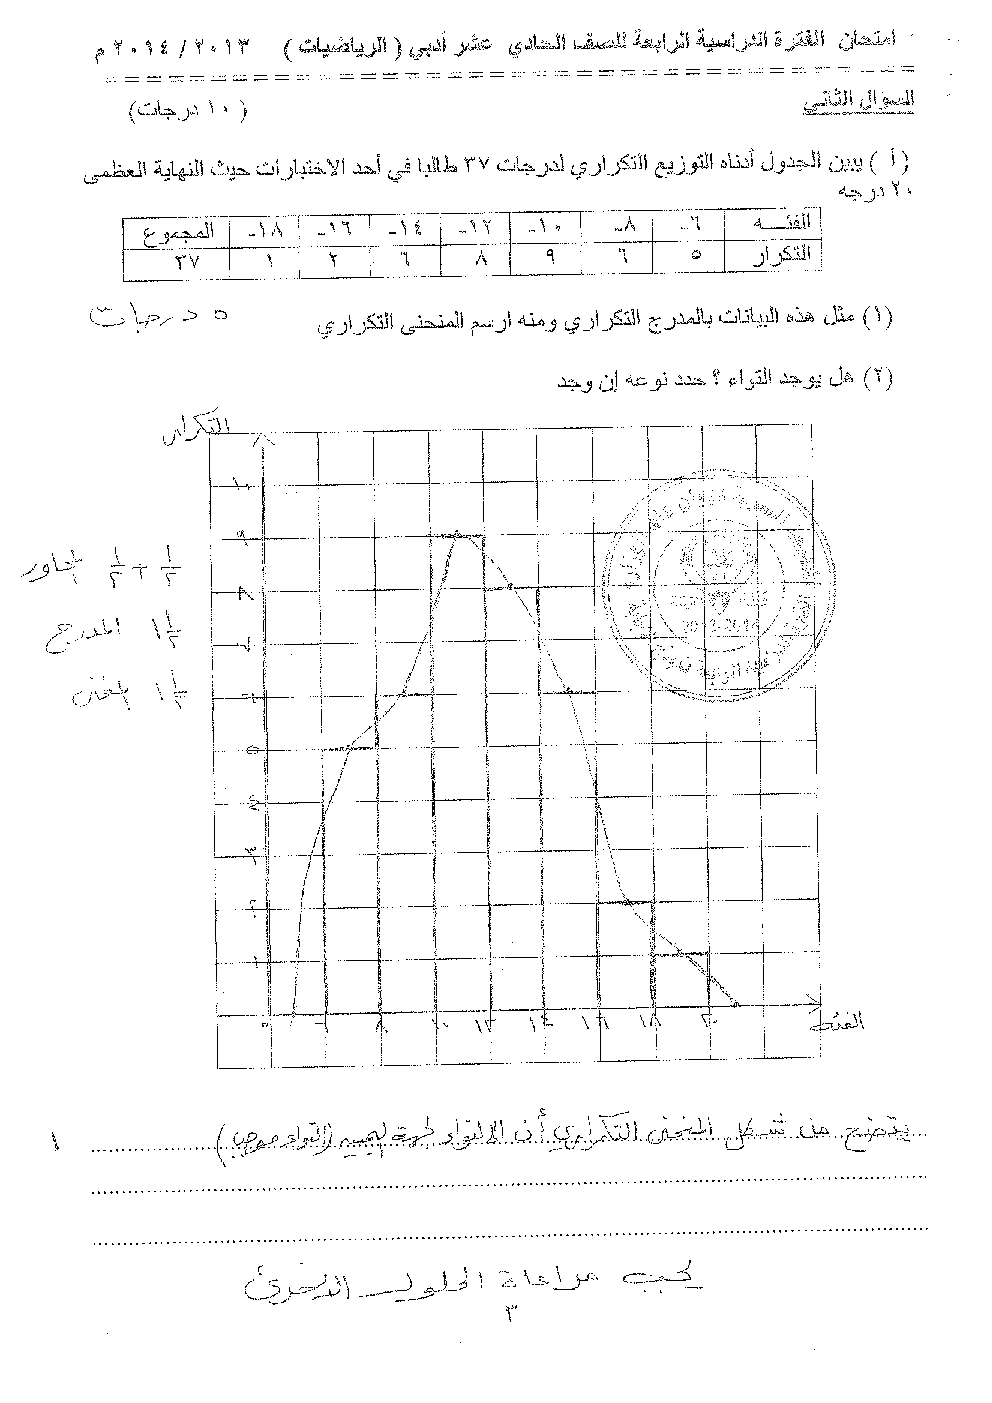 امتحان الفترة الدراسية الرابعة للصف الحادي عشر أدبي ( الرياضيات ) ٢٠١٣ / ٢٠١٤ م
السؤال الثاني (١٠ درجات)
( أ ) يبين الجدول أدناه التوزيع التكراري لدرجات ٣٧ طالبا في أحد الاختبارات حيث النهاية العظمى
٢٠ درجه
الفئـــه ٦- ٨- ١٠- ١٢- ١٤- ١٦- ١٨- المجموع
التكرار ٥ ٦ ٩ ٨ ٦ ٢ ١ ٣٧
(١) مثل هذه البيانات بالمدرج التكراري ومنه ارسم المنحنى التكراري ٥ درجات
(٢) هل يوجد التواء ؟ حدد نوعه إن وجد
التكرار
١٠
٩
٨
٧
٦
٥
٤
٣
٢
١
½ + ½ المحاور
١½ المدرج
١½ المنحنى
٠ ٦ ٨ ١٠ ١٢ ١٤ ١٦ ١٨ ٢٠ الفئة
يتضح من شكل المنحنى التكراري أن الالتواء لجهة اليمين (التواء موجب) ١
يجب مراعاة الحلول الأخرى
٣